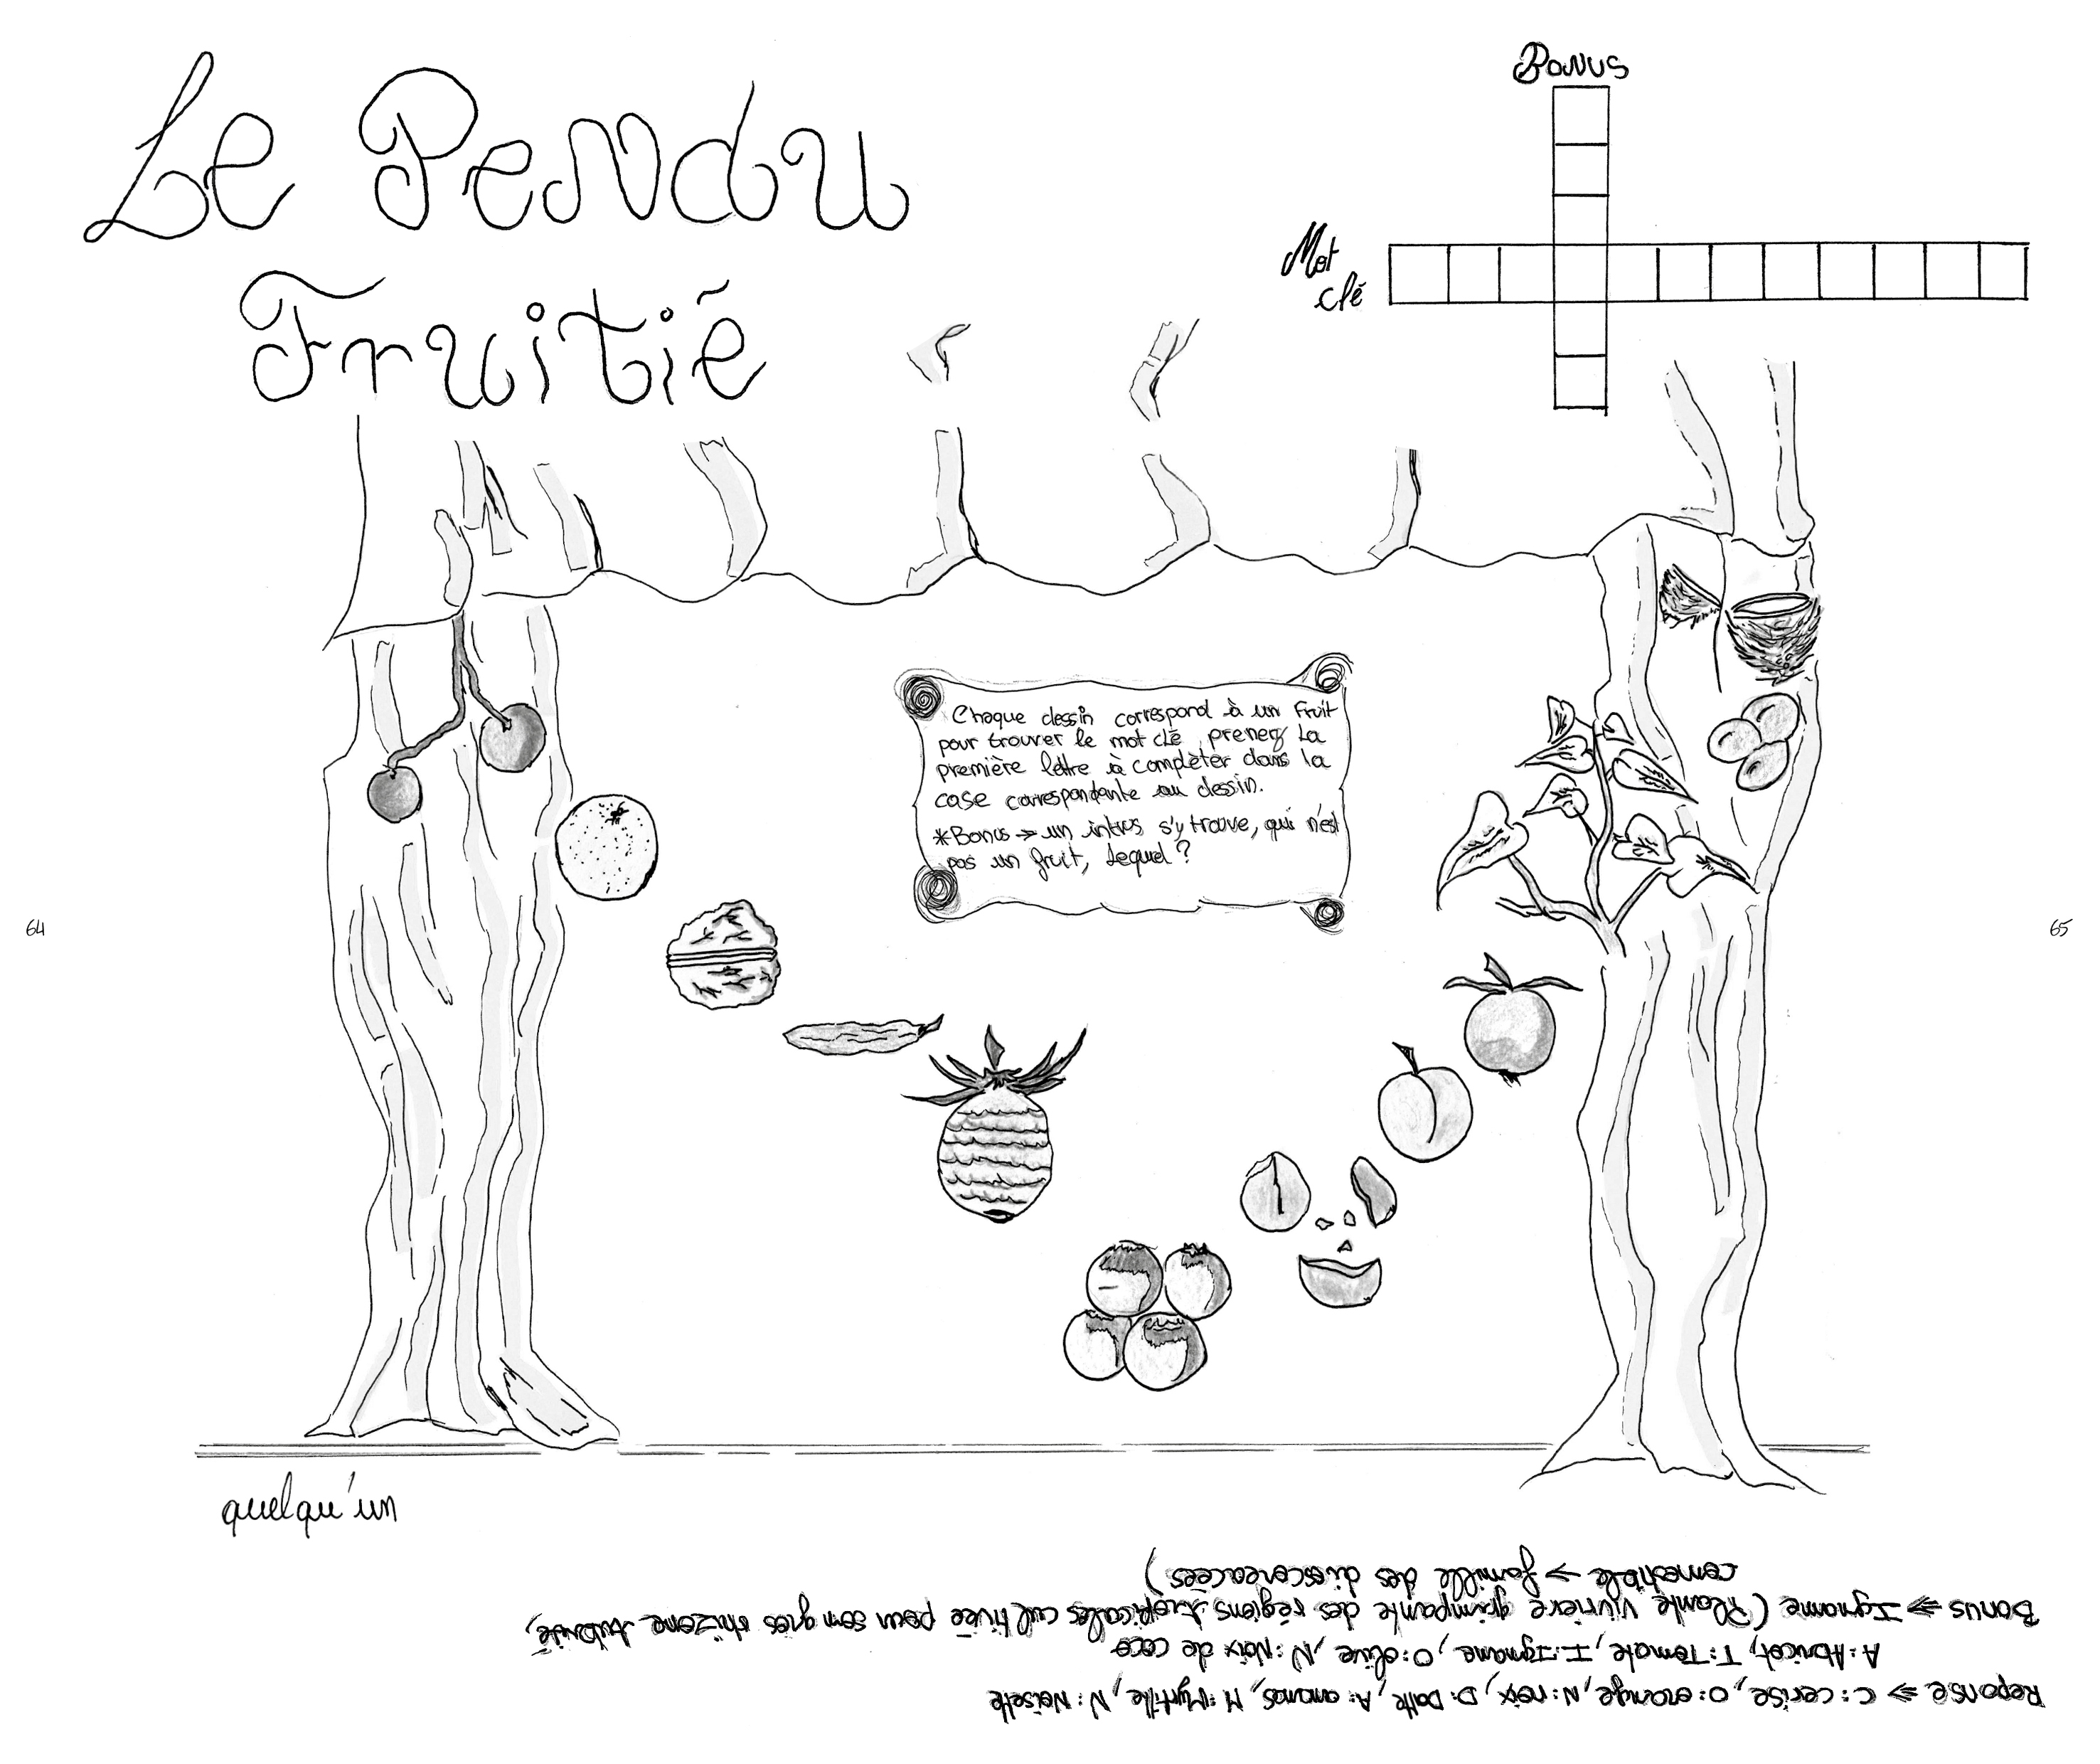 Le Pendu
Fruitié
Bonus
Mot
clé
Chaque dessin correspond à un fruit
pour trouver le mot clé, prenez la
première lettre à complèter dans la
case correspondante au dessin.
*Bonus → un intrus s'y trouve, qui n'est
pas un fruit, lequel ?
64
65
quelqu'un
Reponse ⇒ C: cerise, O: orange, N: noix, D: Datte, A: ananas, M: Myrtille, N: Noisette
A: Abricot, T: Tomate, I: Igname, O: olive, N: Noix de coco
Bonus ⇒ Igname (Plante vivrière grimpante des régions tropicales cultivée pour son gros rhizome tubérisé,
comestible → famille des dioscoreacées)